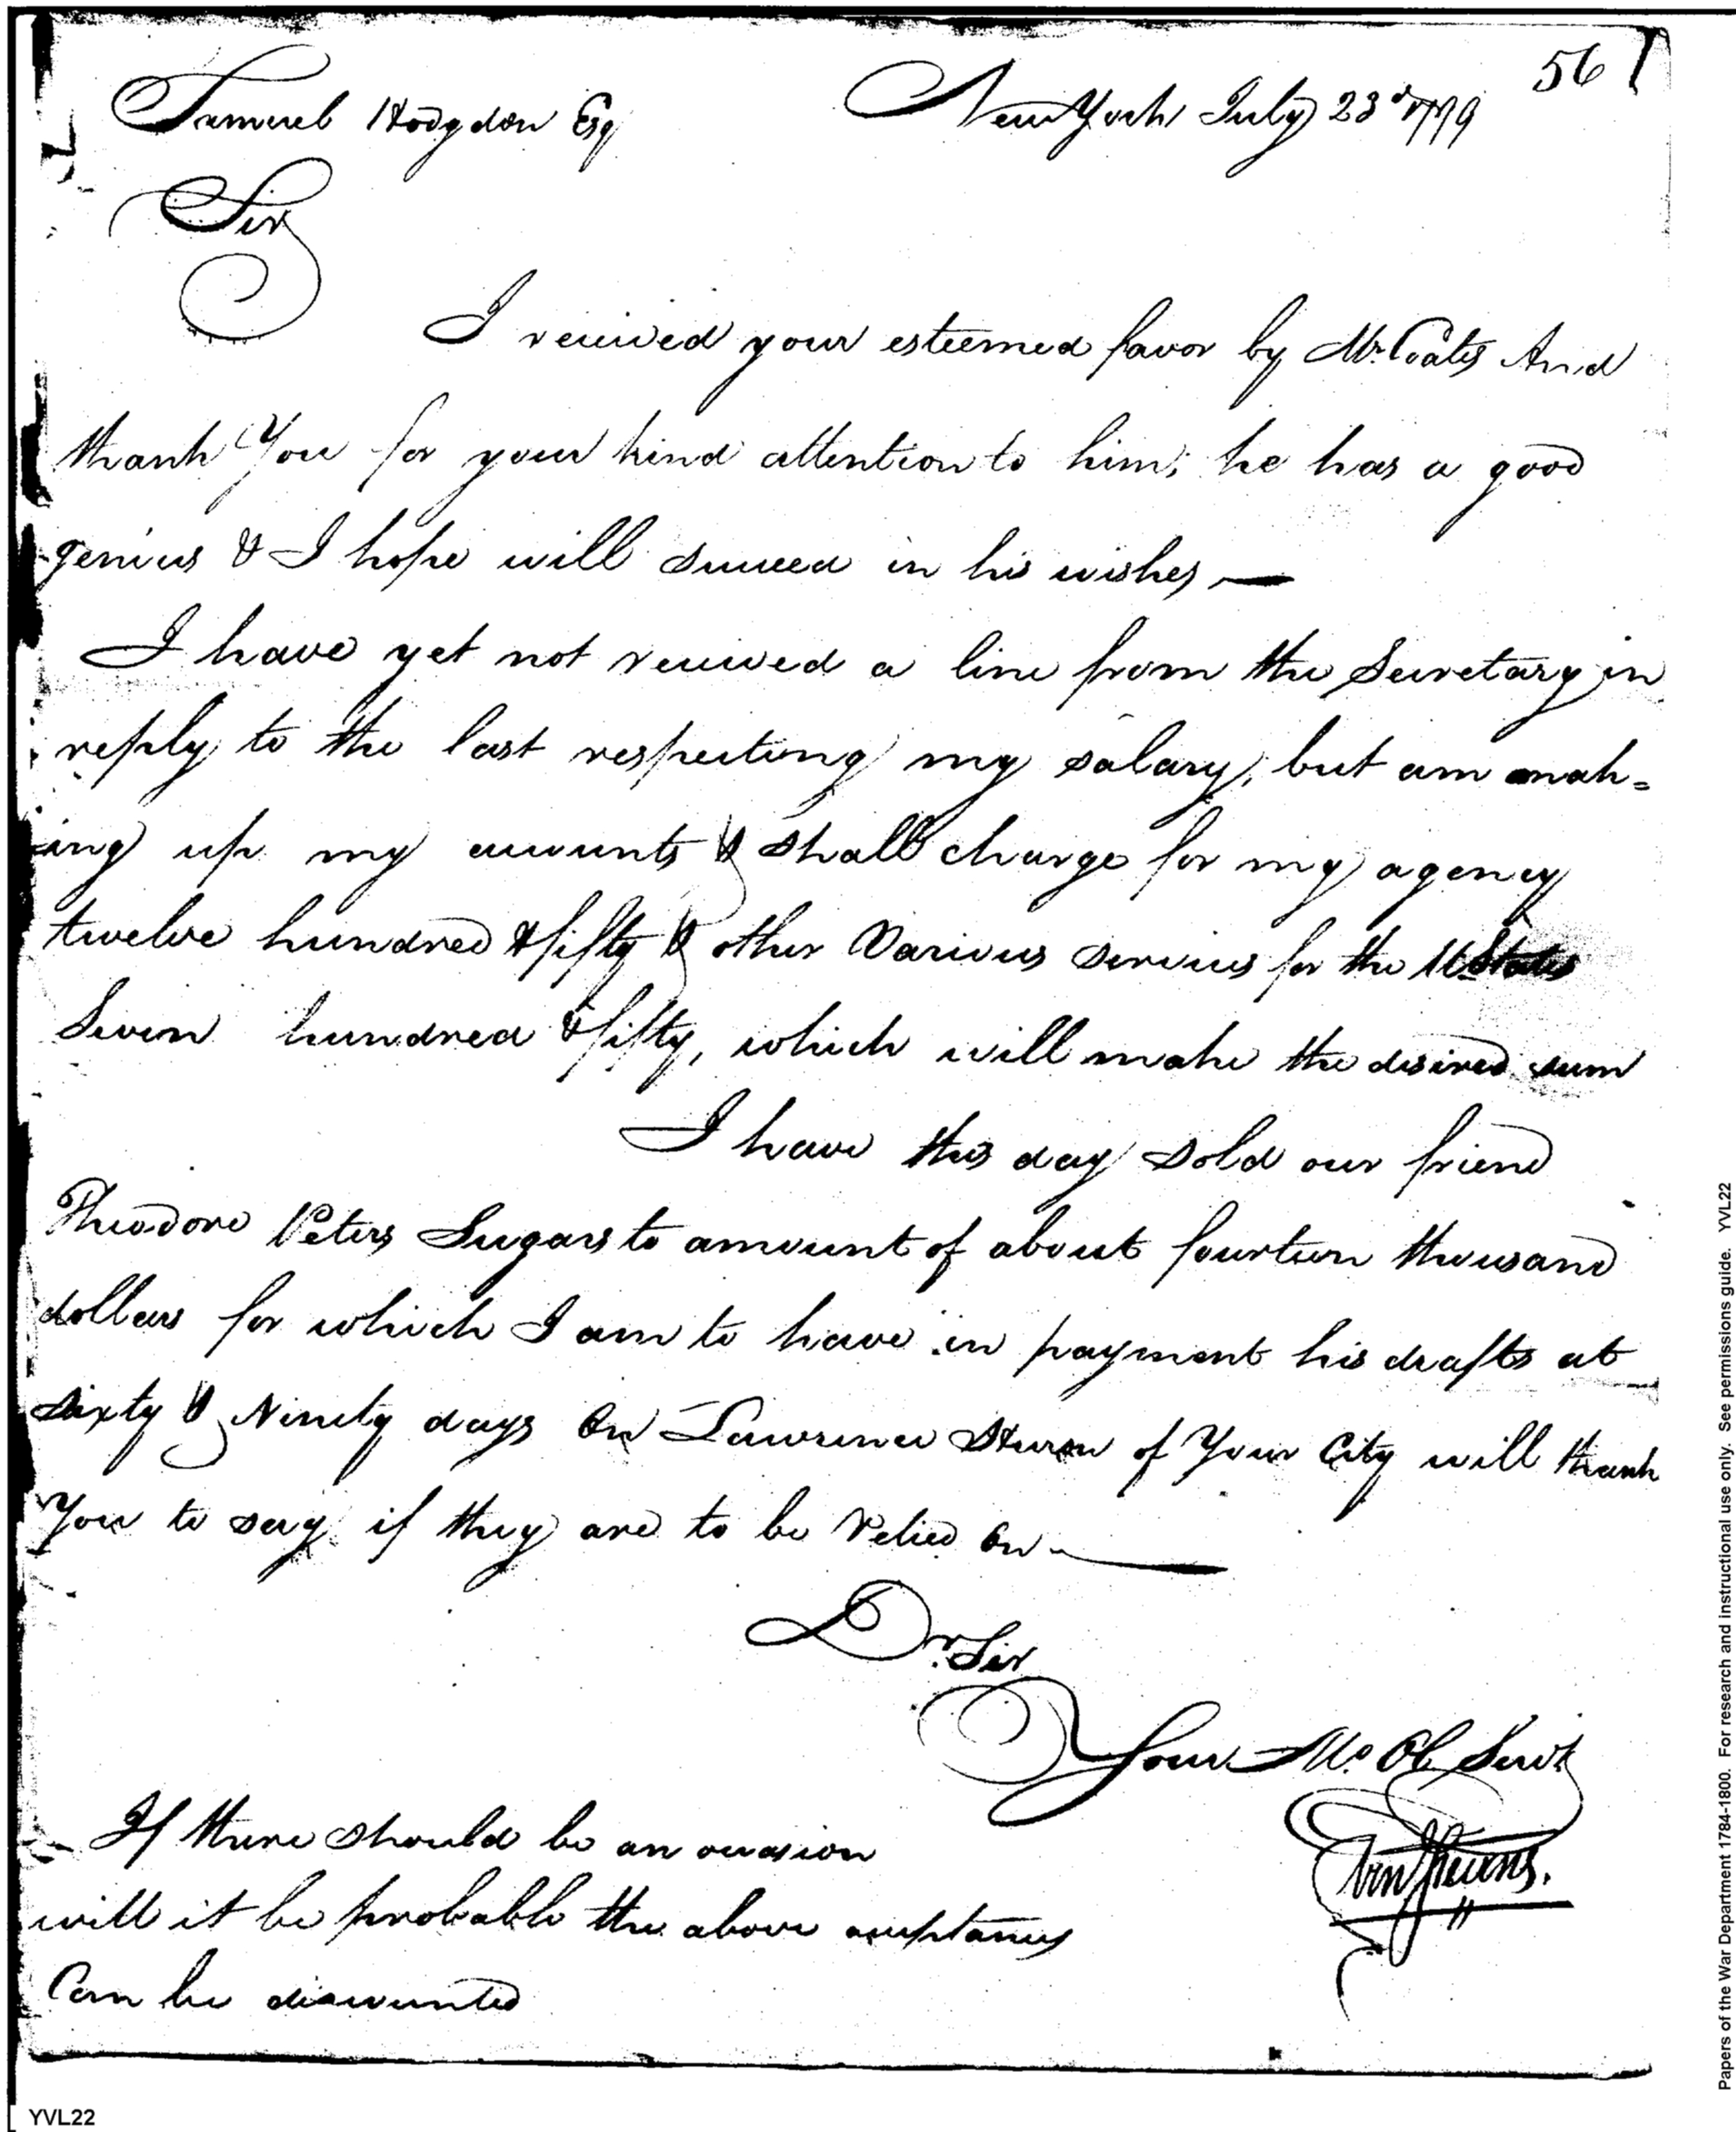 56
Samuel Hodgdon Esq New York July 23d 1799
Sir
I received your esteemed favor by Mr. Coates And
thank You for your kind attention to him; he has a good
genius & I hope will succeed in his wishes —
I have yet not received a line from the Secretary in
reply to the last respecting my salary, but am mak=
ing up my accounts & shall charge for my agency
twelve hundred & fifty & other Various services for the U States
Seven hundred & fifty, which will make the desired sum
I have this day sold our friend
Theodore Peters Sugars to amount of about fourteen thousand
dollars for which I am to have in payment his drafts at
sixty & Ninety days On Lawrence of Your City will thank
You to say if they are to be Relied On —
Dr. Sir
Your Mo Ob Servt
Stevens.
If there should be an occasion
will it be probable the above acceptances
Can be discounted
YVL22
Papers of the War Department 1784-1800. For research and instructional use only. See permissions guide. YVL22